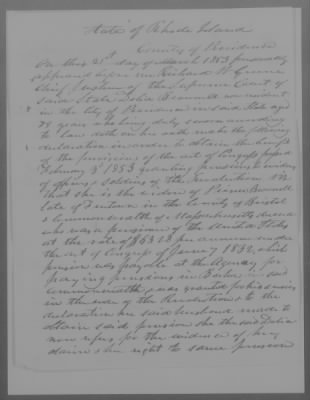 State of Rhode Island
County of Providence
On this 25th day of March 1853 personally
appeared before me Richard W Greene
Chief Justice of the Supreme Court of
said State Delia Bramwell now resident
in the City of Providence in said State aged
79 years who being duly sworn according
to law doth on her oath make the following
declaration in order to obtain the benefit
of the provision of the act of Congress passed
February 3d 1853 granting pensions to widows
of officers & soldiers of the revolution Viz
That she is the widow of
late of Taunton in the County of Bristol
& Commonwealth of Massachusetts deceased
who was a pensioner of the United States
at the rate of $63.28 per annum under
the act of Congress of June 7 1832, which
pension was payable at the Agency for
paying pensions in Boston in said
Commonwealth & was granted for his services
in the war of the Revolution & to the
declaration her said husband made to
obtain said pension she the said Delia
now refers for the evidence of her
claim & her right to same pension